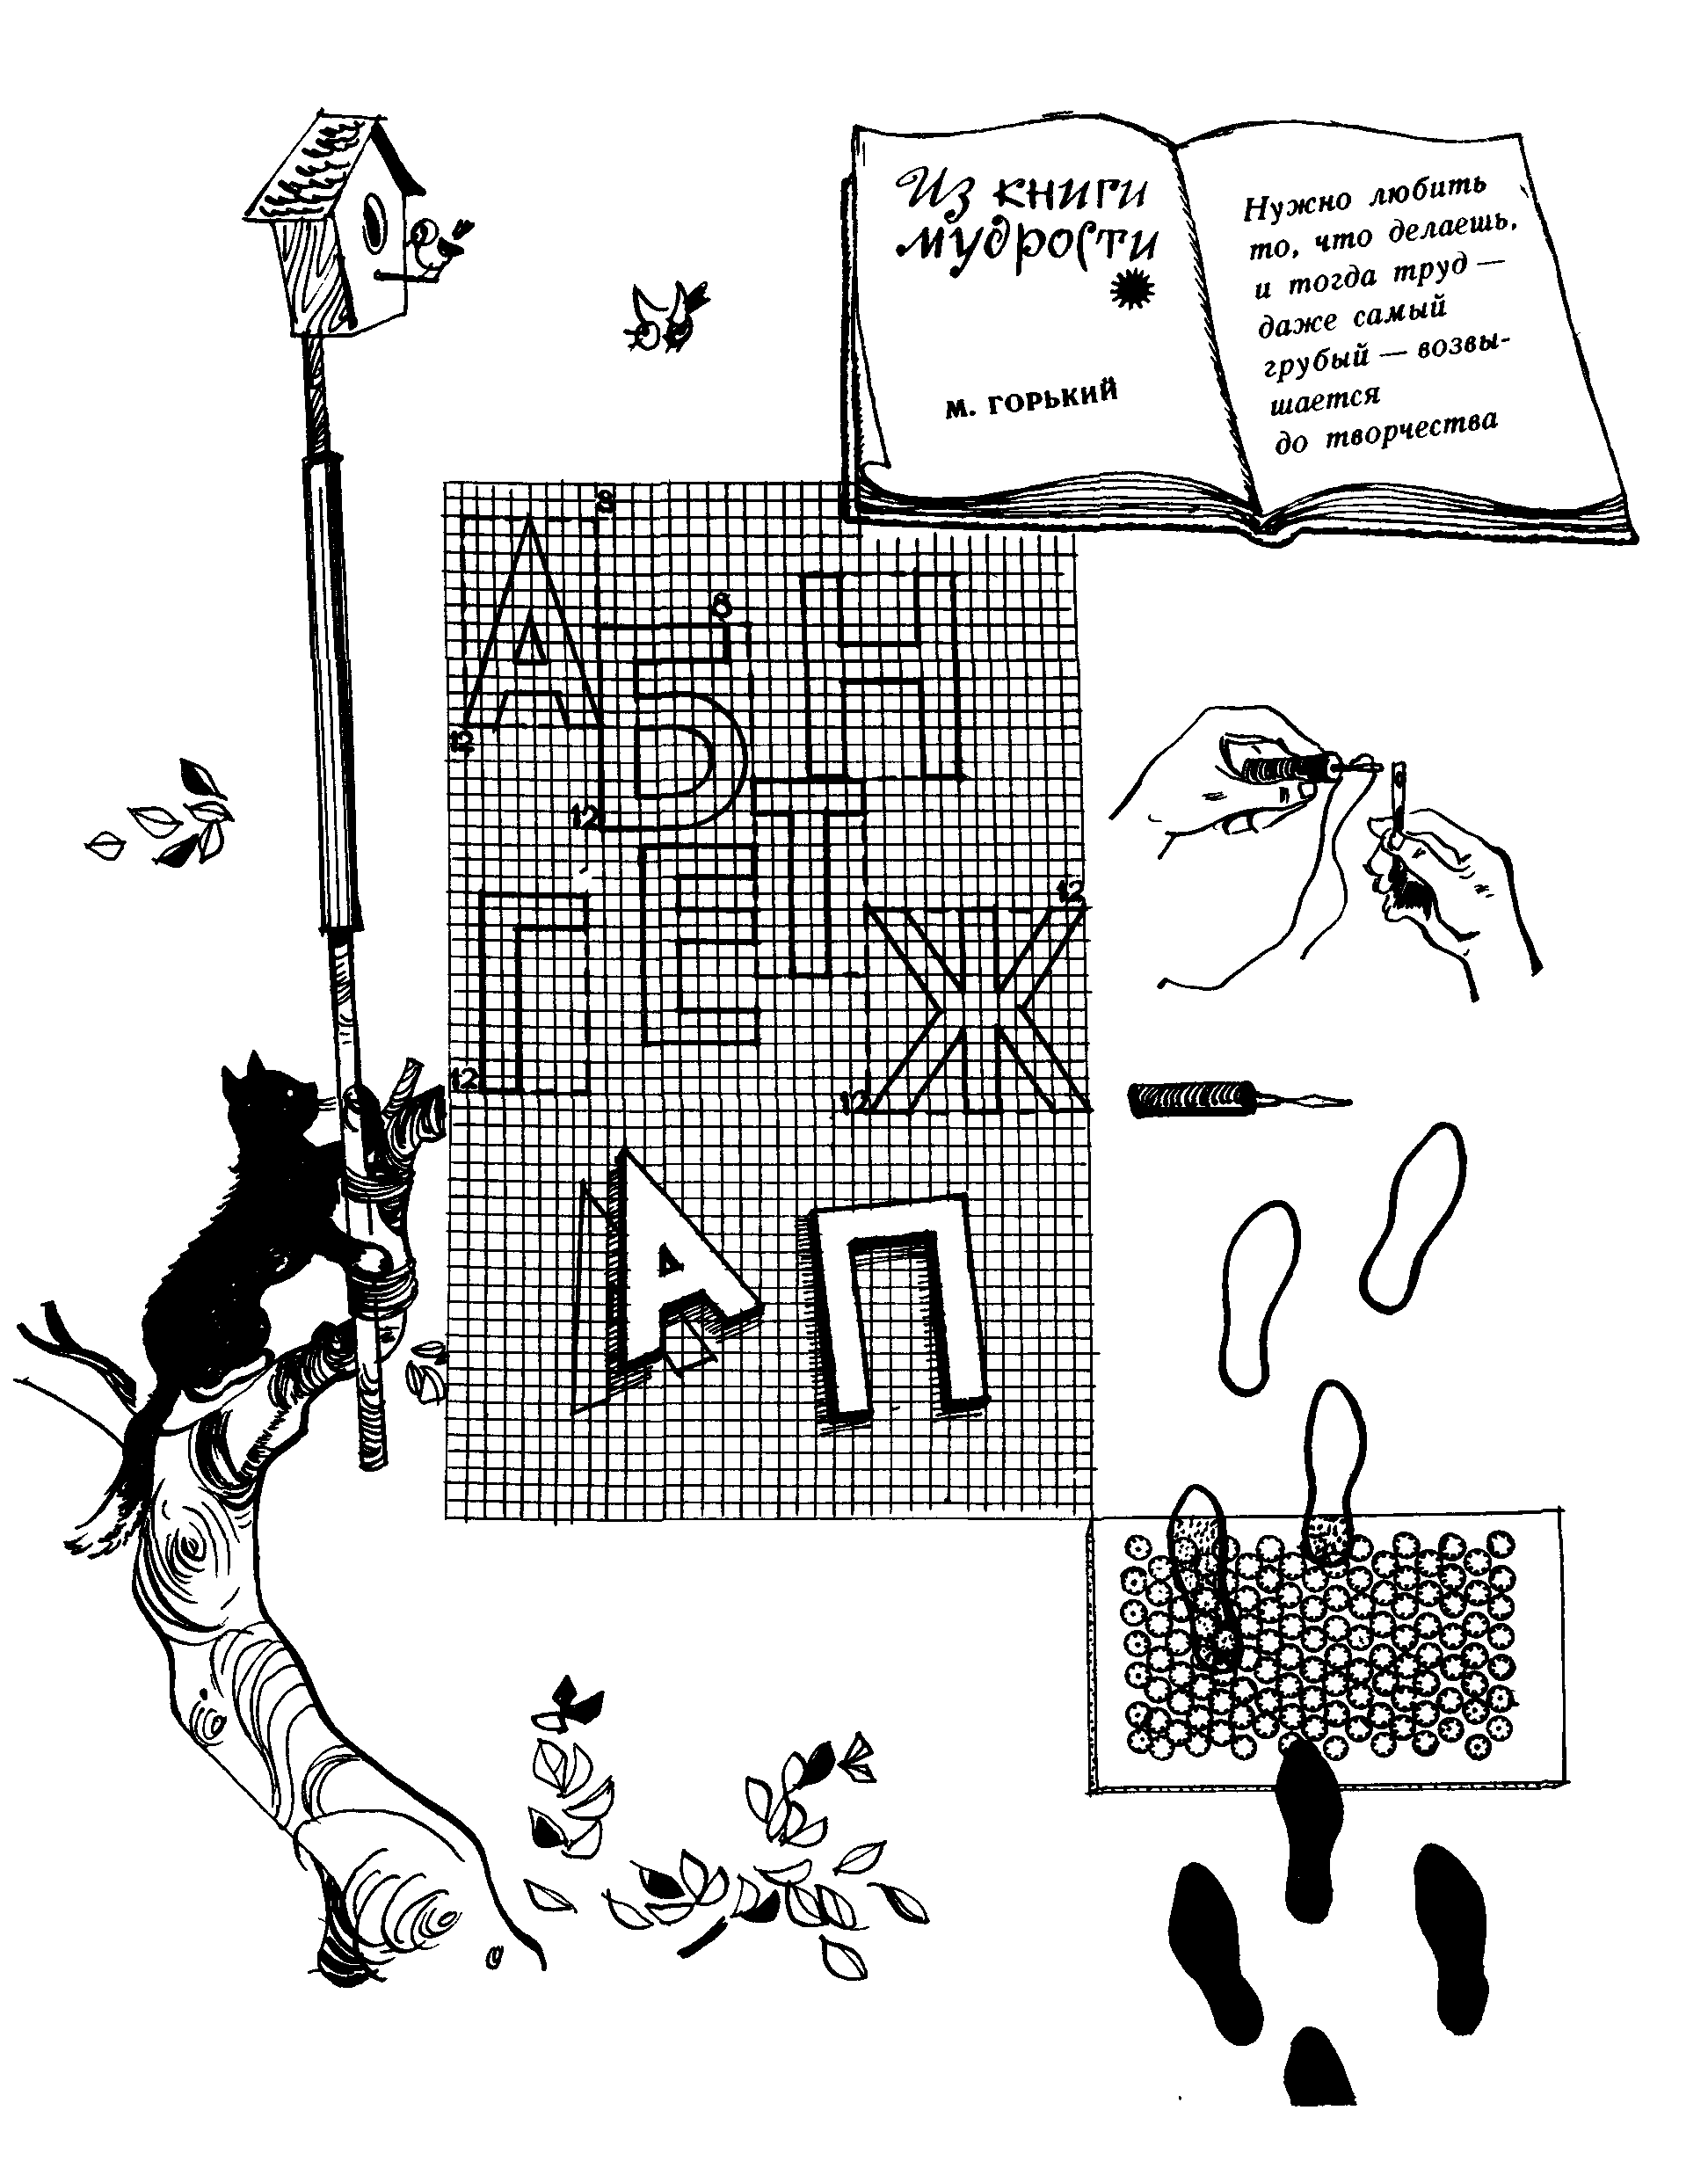 Из книги
мудрости
М. ГОРЬКИЙ
Нужно любить
то, что делаешь,
и тогда труд —
даже самый
грубый — возвы-
шается
до творчества
8
8
А
Б
Н
12
12
Т
Г
Е
Ж
12
12
12
А
П